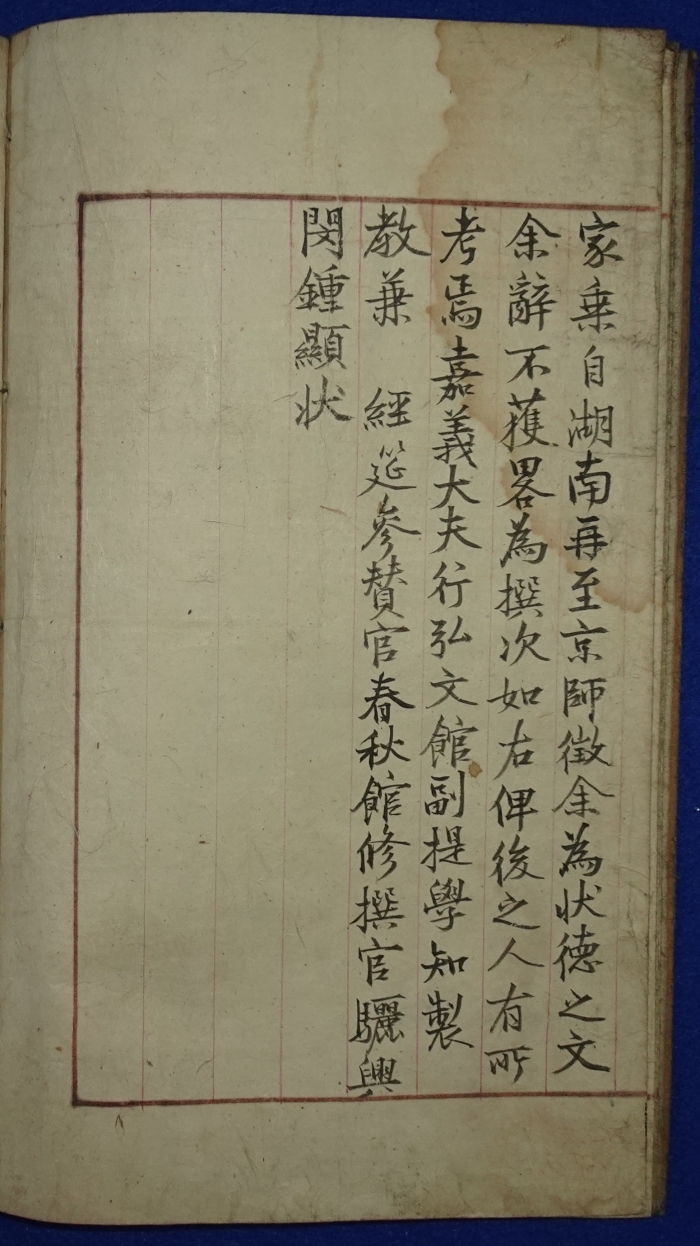 家乘自湖南再至京師徵余為狀德之文
余辭不獲畧為撰次如右俾後之人有所
考焉嘉義大夫行弘文館副提學知製
教兼　經筵參贊官春秋館修撰官驪興
閔鍾顯狀